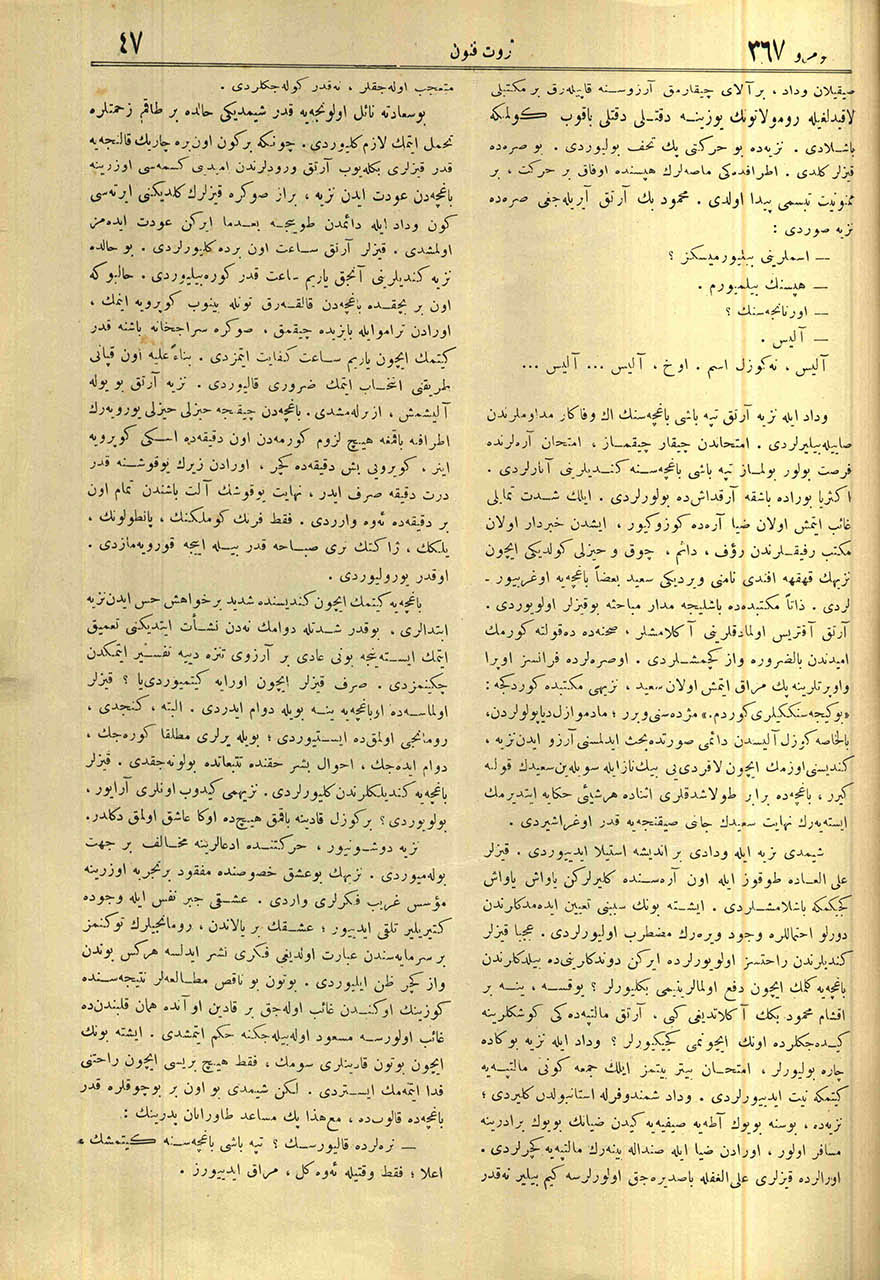 نومرو ٣٦٧
ثروت فنون
٤٧
صيقيلان وداد ، بر آلاى چيقارمق آرزوسنه قاپيله‌رق بر مكتبلى
لاقيدلغيله رومولاتونك يوزينه دقتلى دقتلى باقوب كولمكه
باشلادى . نزيه‌ده بو حركتى پك تحف بوليوردى . بو صره‌ده
قيزلر كلدى . اطرافده‌كى ماصه‌لرك هپسنده اوفاق بر حركت ، بر
ممنونيت تبسمى پيدا اولدى . محمود بك آرتق آيريله‌جغى صره‌ده
نزيه صوردى :
— اسملرينى بيليورميسكز ؟
— هپسنك بيلميورم .
— اورتانجه‌سنك ؟
— آليس .
آليس ، نه‌كوزل اسم . اوخ ، آليس ... آليس ...
وداد ايله نزيه آرتق تپه باشى باغچه‌سنك اك وفاكار مداوملرندن
صاييله‌بيليرلردى . امتحاندن چيقار چيقماز ، امتحان آره‌لرنده
فرصت بولور بولماز تپه باشى باغچه‌سنه كنديلرينى آتارلردى .
اكثريا بوراده باشقه آرقداش‌ده بولورلردى . ايلك شدت تمايلى
غائب ايتمش اولان ضيا آره‌ده كوزوكيور ، ايشدن خبردار اولان
مكتب رفيقلرندن رؤف ، دائم ، چوق و حيزلى كولديكى ايچون
نزيهك قهقهه افندى نامنى ويرديكى سعيد بعضاً باغچه‌يه اوغرييور ـ
لردى . ذاتاً مكتبده‌ده باشليجه مدار مباحثه بوقيزلر اولويوردى .
آرتق آقتريس اولمادقلرينى آكلامشلر ، صحنه‌ده ده‌قولته كورمك
اميدندن بالضروره واز كچمشلردى . اوصره‌لرده فرانسز اوپرا
واوپرتلرينه پك مراق ايتمش اولان سعيد ، نزيهى مكتبده كوردكجه :
«بوكيجه‌سنككيلرى كوردم.» مژده‌سنى ويرر ؛ مادموازل دياپولولردن،
بالخاصه كوزل آليسدن دائمى صورتده بحث ايدلمسنى آرزو ايدن نزيه ،
كنديسنى اوزمك ايچون لافردى‌يى بيك نازايله سويله‌ين سعيدك قولنه
كيرر ، باغچه‌ده برابر طولاشدقلرى اثناده هرشيئى حكايه ايتديرمك
ايسته‌يه‌رك نهايت سعيدك جانى صيقنجه‌يه قدر اوغراشيردى .
شيمدى نزيه ايله ودادى بر انديشه استيلا ايدييوردى . قيزلر
على العاده طوقوز ايله اون آره‌سنده كليرلركن ياواش ياواش
كجيكمكه باشلامشلردى . ايشته بونك سببنى تعيين ايده‌مدكلرندن
دورلو احتماللره وجود ويره‌رك مضطرب اوليورلردى . عجبا قيزلر
كنديلرندن راحتسز اولويورلرده ايركن دوندكارينى‌ده بيلدكارندن
باغچه‌يه كلمك ايچون دفع اولمالرينيمى بكليورلر ؟ يوقسه ، ينه بر
اقشام محمود بكك آكلاتديغى كى ، آرتق مالتپه‌ده‌كى كوشكلرينه
كيده‌جكلرده اونك ايچونمى كجيكيورلر ؟ وداد ايله نزيه بوكاده
چاره بوليورلر ، امتحان بيتر بيتمز ايلك جمعه كونى مالتپه‌يه
كيتمكه نيت ايدييورلردى . وداد شمندوفرله استانبولدن كليردى ؛
نزيه‌ده ، بوسنه بويوك آطه‌يه صيفيه‌يه كيدن ضيانك بويوك برادرينه
مسافر اولور ، اورادن ضيا ايله صنداله بينه‌رك مالتپه‌يه كچرلردى .
اورالرده قيزلرى على‌الغفله باصديره‌جق اولورلرسه كيم بيلير نه‌قدر
متعجب اوله‌جقلر ، نه‌قدر كوله‌جكلردى .
بوسعادته نائل اولونجه‌يه قدر شيمديكى حالده بر طاقم زحمتلره
تحمل ايتمك لازم كليوردى . چونكه بركون اون‌بره چاريك قالنجه‌يه
قدر قيزلرى بكله‌يوب آرتق ورودلرندن اميدينى كسمه‌سى اوزرينه
باغچه‌دن عودت ايدن نزيه ، براز صوكره قيزلرك كلديكنى ايرته‌سى
كون وداد ايله دائمدن طويبجه بعدما ايركن عودت ايده‌مز
اولمشدى . قيزلر آرتق ساعت اون برده كليورلردى . بو حالده
نزيه كنديلرينى آنجق ياريم ساعت قدر كوره‌بيليوردى . حالبوكه
اون بر بچقده باغچه‌دن قالقه‌رق تونله بينوب كوپرويه ايتمك ،
اورادن تراموايله بايزيده چيقمق ، صوكره سراجخانه باشنه قدر
كيتمك ايچون ياريم ساعت كفايت ايتمزدى . بناءً عليه اون قپانى
طريقنى انتخاب ايتمك ضرورى قاليوردى . نزيه آرتق بو يوله
آليشمش ، ازبرله‌مشدى . باغچه‌دن چيقنجه حيزلى حيزلى يورويه‌رك
اطرافه باقمغه هيچ لزوم كورمه‌دن اون دقيقه‌ده اسكى كوپرويه
اينر ، كوپرويى بش دقيقه‌ده كچر ، اورادن زيرك يوقوشنه قدر
درت دقيقه صرف ايدر ، نهايت يوقوشك آلت باشندن تمام اون
بر دقيقه‌ده ئه‌وه واردى . فقط فرنك كوملكنك ، پانطولونك ،
يلكك ، ژاكتك ترى صباحه قدر بيله اييجه قورويه‌مازدى .
اوقدر يورولويوردى .
باغچه‌يه كيتمك ايچون كنديسنده شديد بر خواهش حس ايدن نزيه
ابتدالرى ، بوقدر شدتله دوامك نه‌دن نشأت ايتديكنى تعميق
ايتمك ايسته‌ينجه بونى عادى بر آرزوى تنزه دييه تفسير ايتمكدن
چكينمزدى . صرف قيزلر ايچون اورايه كيتميوردى‌يا ؟ قيزلر
اولماسه‌ده اوباغچه‌يه ينه بويله دوام ايدردى . البته ، كنجدى ،
رومانجى اولمق‌ده ايستيوردى ؛ بويله يرلرى مطلقا كوره‌جك ،
دوام ايده‌جك ، احوال بشر حقنده تتبعاتده بولونه‌جقدى . قيزلر
باغچه‌يه كنديلكلرندن كليورلردى . نزيهمى كيدوب اونلرى آرايور ،
بولويوردى ؟ بركوزل قادينه باقمق هيچ‌ده اوكا عاشق اولمق دكلدر.
نزيه دوشونيور ، حركتنده ادعالرينه مخالف بر جهت
بوله‌ميوردى . نزيهك بوعشق خصوصنده مفقود برتجربه اوزرينه
مؤسس غريب فكرلرى واردى . عشقى جبر نفس ايله وجوده
كتيريلير تلقى ايدييور ؛ عشقك بر يالاندن ، رومانجيلرك توكنمز
بر سرمايه‌سندن عبارت اولديغى فكرى نشر ايدلسه هركس بوندن
واز كچر ظن ايليوردى . بوتون بو ناقص مطالعه‌لر نتيجه‌سنده
كوزينك اوكندن غائب اوله‌جق بر قادين اوآنده همان قلبندن‌ده
غائب اولورسه مسعود اوله‌بيله‌جكنه حكم ايتمشدى . ايشته بونك
ايچون بوتون قادينلرى سومك ، فقط هيچ بريسى ايچون راحتنى
فدا ايتمه‌مك ايستردى . لكن شيمدى بو اون بر بوچوقلره قدر
باغچه‌ده قالوب‌ده ، مع‌هذا پك مساعد طاورانان پدرينك :
— نره‌لرده قاليورسك ؟ تپه باشى باغچه‌سنه كيتمشك ،
اعلا ؛ فقط وقتيله ئه‌وه كل ، مراق ايدييورز .